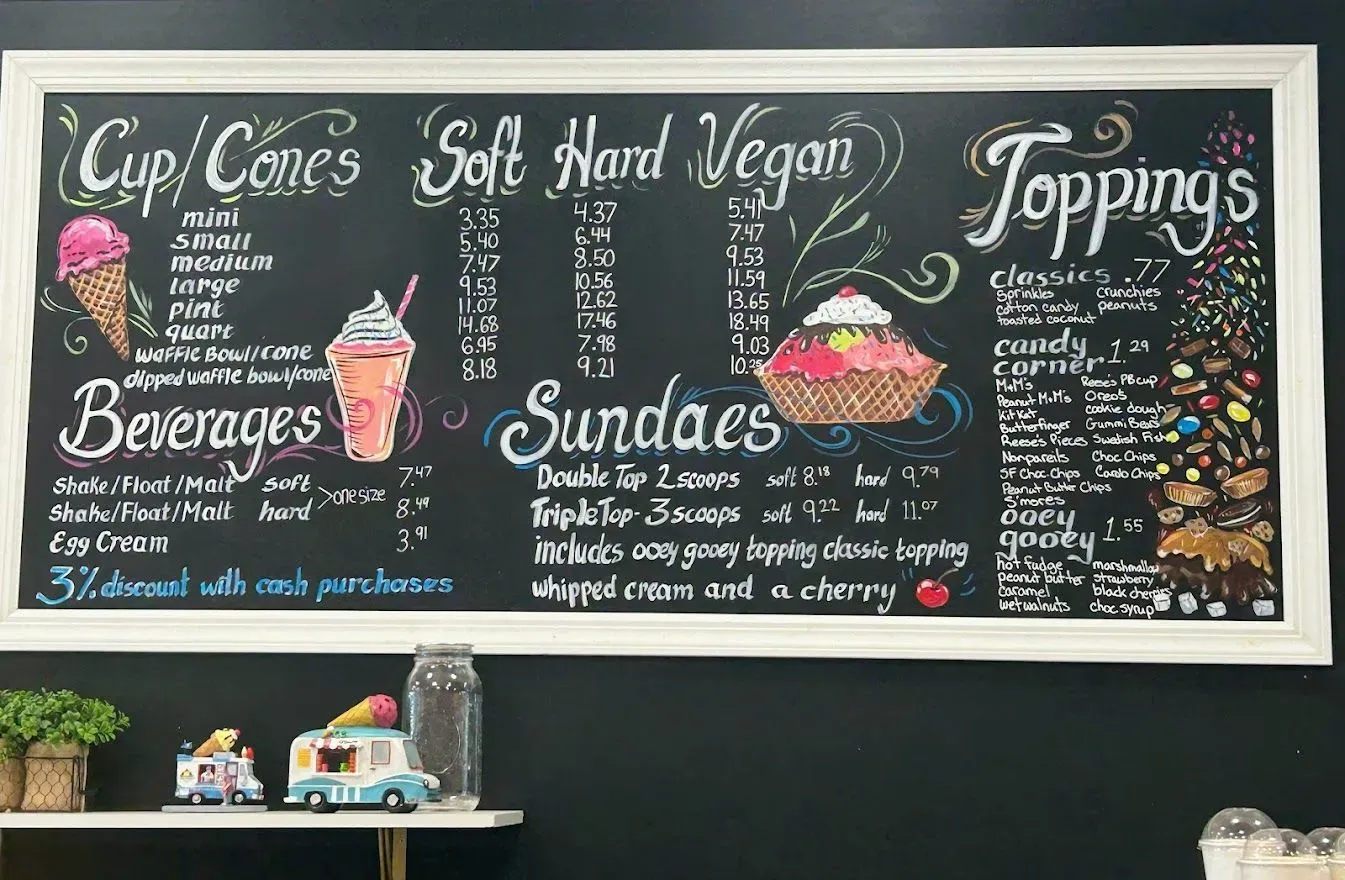 Cup/Cones Soft Hard Vegan
mini 3.35 4.37 5.41
small 5.40 6.44 7.47
medium 7.47 8.50 9.53
large 9.53 10.56 11.59
pint 11.07 12.62 13.65
quart 14.68 17.46 18.49
waffle Bowl/cone 6.95 7.98 9.03
dipped waffle bowl/cone 8.18 9.21 10.25
Beverages
Shake/Float/Malt soft 7.47
>one size
Shake/Float/Malt hard 8.49
Egg Cream 3.91
3% discount with cash purchases
Sundaes
Double Top 2 scoops soft 8.18 hard 9.79
Triple Top - 3 scoops soft 9.22 hard 11.07
includes ooey gooey topping classic topping
whipped cream and a cherry
Toppings
classics .77
Sprinkles crunchies
cotton candy peanuts
toasted coconut
candy
corner 1.29
M+M's Reese's PB cup
Peanut M+M's Oreos
Kit Kat cookie dough
Butterfinger Gummi Bears
Reese's Pieces Swedish Fish
Nonpareils Choc Chips
SF Choc. Chips Carob Chips
Peanut Butter Chips
S'mores
ooey
gooey 1.55
hot fudge marshmallow
peanut butter strawberry
caramel black cherries
wet walnuts choc syrup